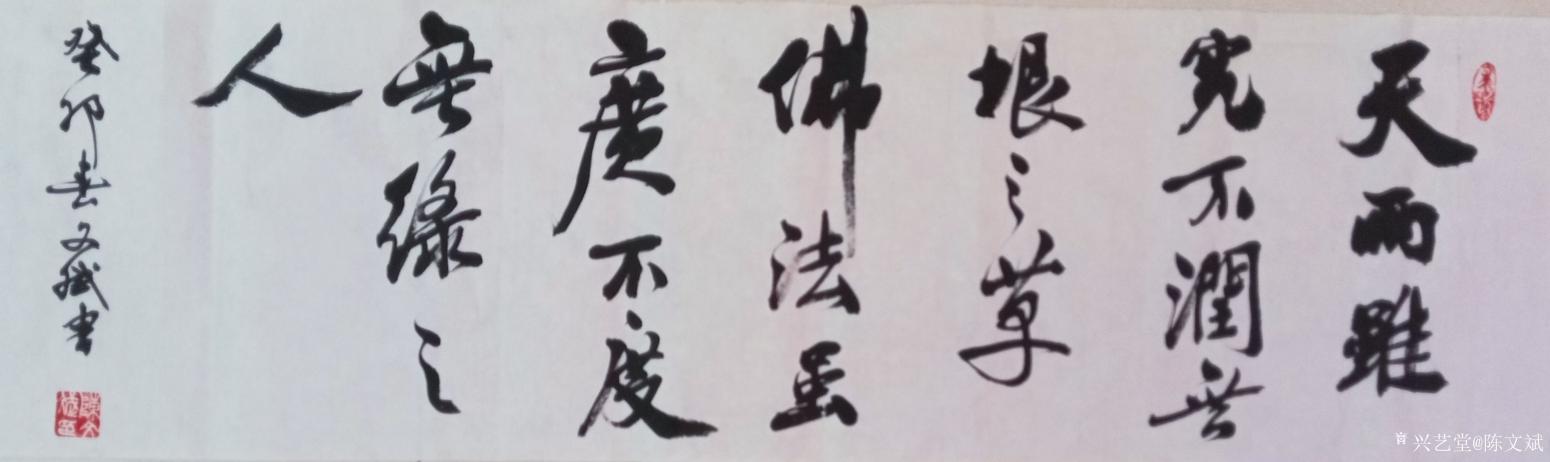 天雨雖
宽不潤無
根之草
佛法虽
廣不度
無緣之
人
癸卯春文斌书
兴艺堂@陈文斌